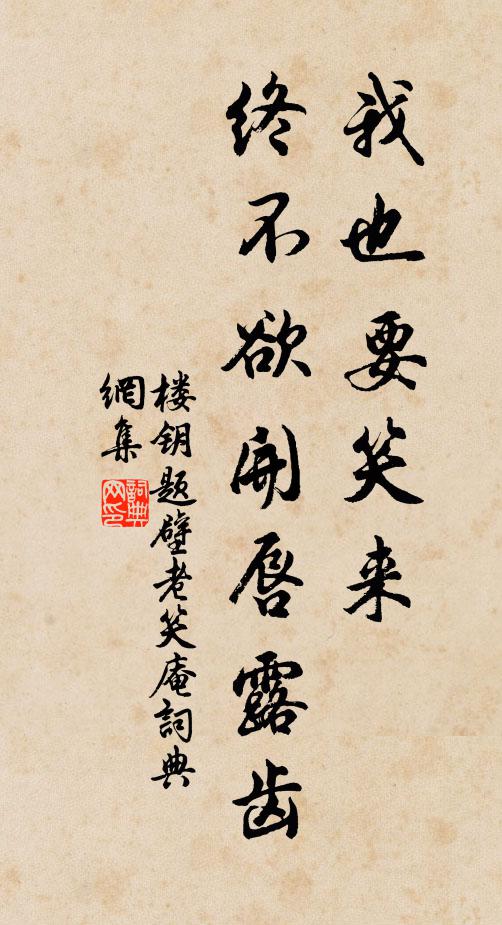 我也要笑来
终不欲开唇露齿
楼钥题壁老笑庵詞典
網集
詞典
网印